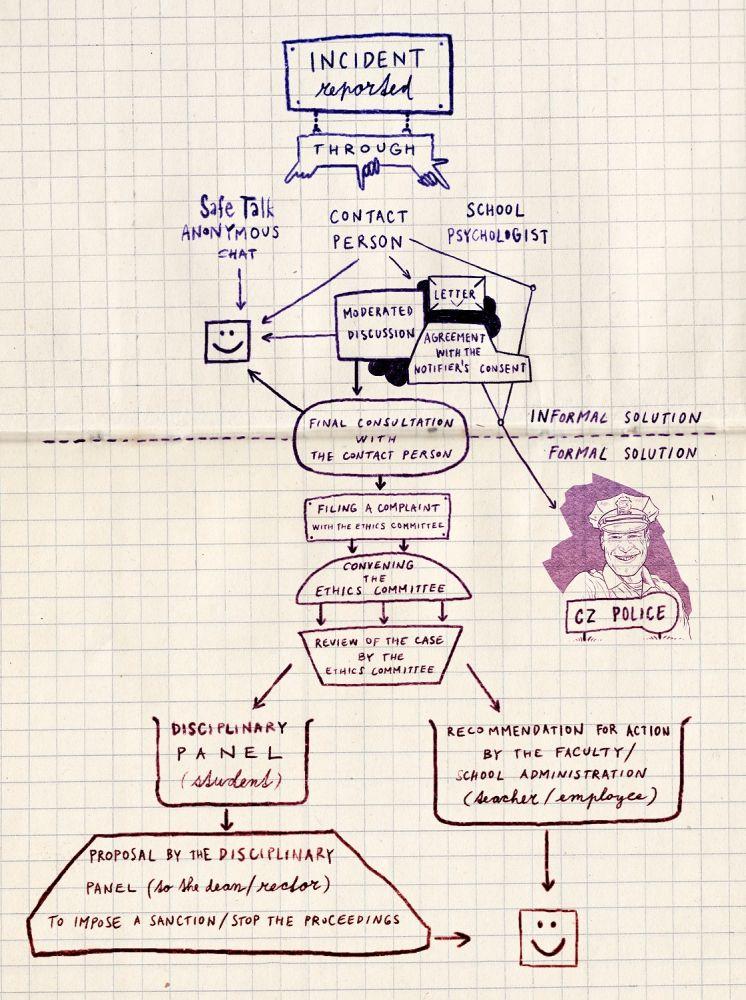 INCIDENT
reported
THROUGH
Safe Talk
ANONYMOUS
CHAT
CONTACT
PERSON
SCHOOL
PSYCHOLOGIST
MODERATED
DISCUSSION
LETTER
AGREEMENT
WITH THE
NOTIFIER'S CONSENT
FINAL CONSULTATION
WITH
THE CONTACT PERSON
INFORMAL SOLUTION
FORMAL SOLUTION
FILING A COMPLAINT
WITH THE ETHICS COMMITTEE
CONVENING
THE
ETHICS COMMITTEE
REVIEW OF THE CASE
BY THE
ETHICS COMMITTEE
CZ POLICE
DISCIPLINARY
PANEL
(student)
RECOMMENDATION FOR ACTION
BY THE FACULTY/
SCHOOL ADMINISTRATION
(teacher/employee)
PROPOSAL BY THE DISCIPLINARY
PANEL (to the dean/rector)
TO IMPOSE A SANCTION/STOP THE PROCEEDINGS